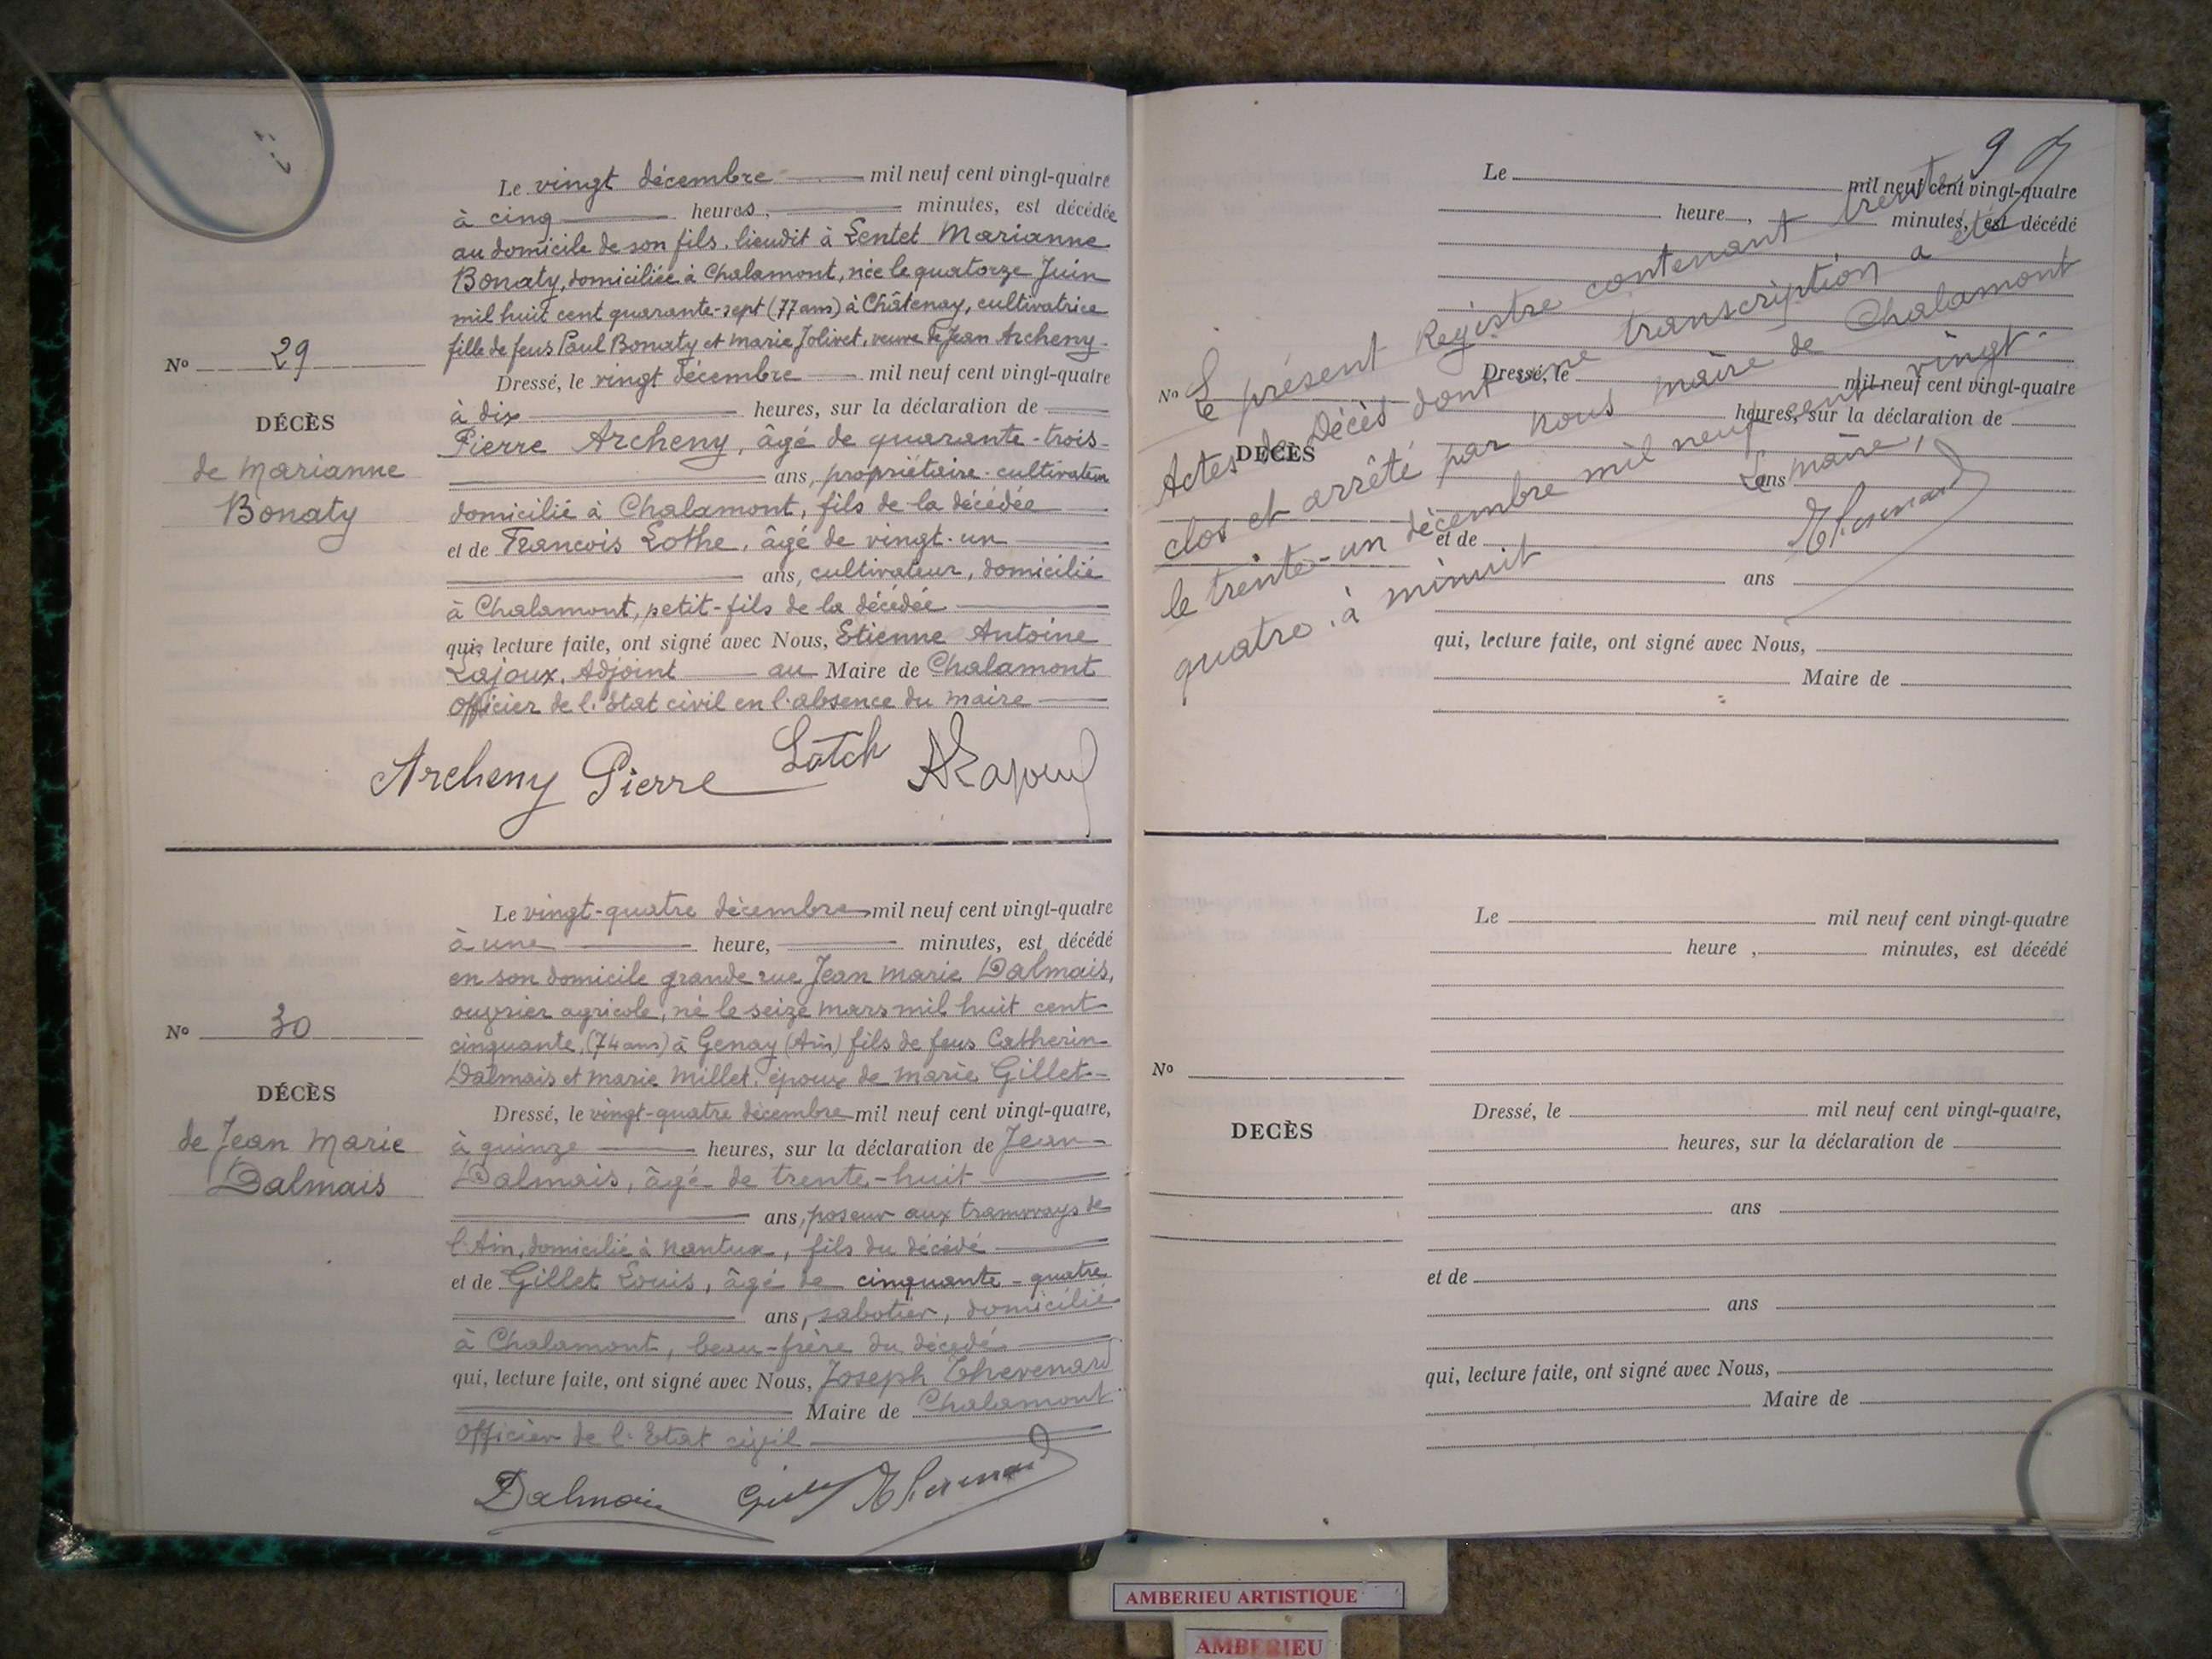 Le vingt décembre mil neuf cent vingt-quatre
à cinq heures, minutes, est décédée
au domicile de son fils, lieudit à Lentet Marianne
Bonaty, domiciliée à Chalamont, née le quatorze Juin
mil huit cent quarante-sept (77 ans) à Châtenay, cultivatrice
fille de feus Paul Bonaty et marie Jolivet, veuve de Jean Archeny
No 29
DÉCÈS
de Marianne
Bonaty
Dressé, le vingt décembre mil neuf cent vingt-quatre
à dix heures, sur la déclaration de
Pierre Archeny, âgé de quarante-trois
ans, propriétaire-cultivateur
domicilié à Chalamont, fils de la décédée
et de Francois Lothe, âgé de vingt-un
ans, cultivateur, domicilié
à Chalamont, petit-fils de la décédée
qui, lecture faite, ont signé avec Nous, Etienne Antoine
Lajoux, Adjoint au Maire de Chalamont
Officier de l'Etat civil en l'absence du maire
Archeny Pierre Lotch ALajoux
Le vingt-quatre décembre mil neuf cent vingt-quatre
à une heure, minutes, est décédé
en son domicile grande rue Jean Marie Dalmais,
ouvrier agricole, né le seize mars mil huit cent
cinquante, (74 ans) à Genay (Ain) fils de feus Catherin
Dalmais et marie Millet, époux de marie Gillet
No 30
DÉCÈS
de Jean Marie
Dalmais
Dressé, le vingt-quatre décembre mil neuf cent vingt-quatre,
à quinze heures, sur la déclaration de Jean
Dalmais, âgé de trente-huit
ans, poseur aux tramways de
l'Ain, domicilié à Nantua, fils du décédé
et de Gillet Louis, âgé de cinquante-quatre
ans, sabotier, domicilié
à Chalamont, beau-frère du décédé
qui, lecture faite, ont signé avec Nous, Joseph Thevenard
Maire de Chalamont
Officier de l'Etat civil
Dalmais
9
Le mil neuf cent vingt-quatre
heure, minutes, est décédé
Le présent Registre contenant trente
Actes de Décès dont une transcription a été
clos et arrêté par nous maire de Chalamont
le trente-un décembre mil neuf cent vingt-
quatre, à minuit
Le maire,
No
DECÈS
Dressé, le mil neuf cent vingt-quatre
heures, sur la déclaration de
ans
et de
ans
qui, lecture faite, ont signé avec Nous,
Maire de
Le mil neuf cent vingt-quatre
heure, minutes, est décédé
No
DECÈS
Dressé, le mil neuf cent vingt-quatre,
heures, sur la déclaration de
ans
et de
ans
qui, lecture faite, ont signé avec Nous,
Maire de
AMBERIEU ARTISTIQUE
AMBERIEU